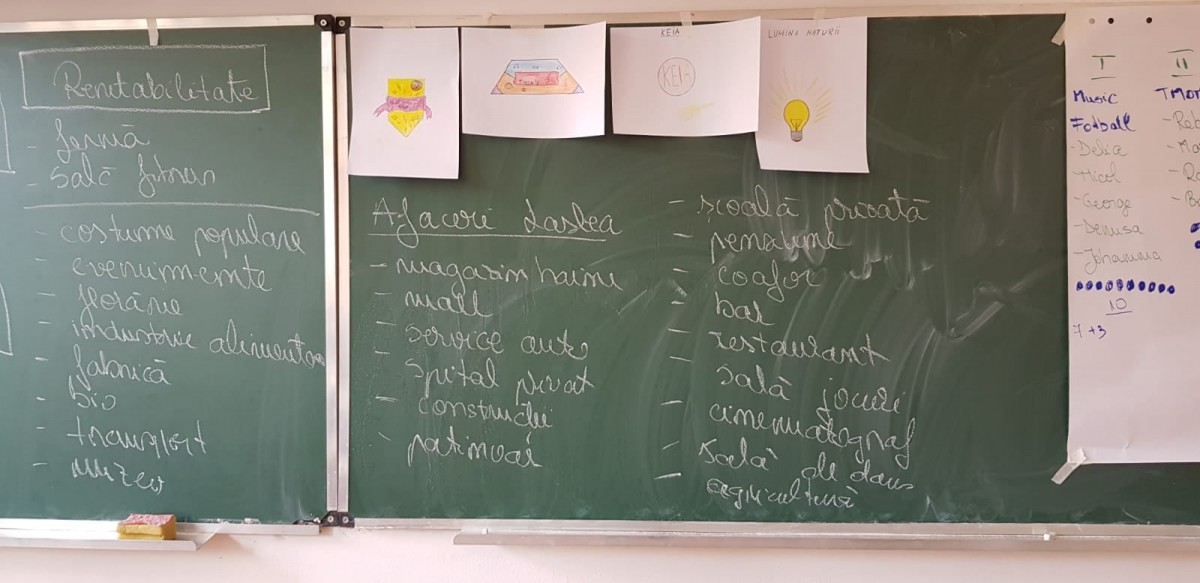 Rentabilitate
- fermă
- sală fitness
- costume populare
- evenimente
- florărie
- industrie alimentară
- fabrică
- bio
- transport
- muzeu
KEIA
KEIA
LUMINA NATURII
Afaceri Laslea
- magazin haine
- mall
- service auto
- spital privat
- construcții
- patinoar
- școală privată
- pensiune
- coafor
- bar
- restaurant
- sală jocuri
- cinematograf
- sală de dans
- agricultură
I
Music
Fotball
- Delia
- Nicol
- George
- Denisa
- Johanna
10
7+3
II
- Reb
- Ma